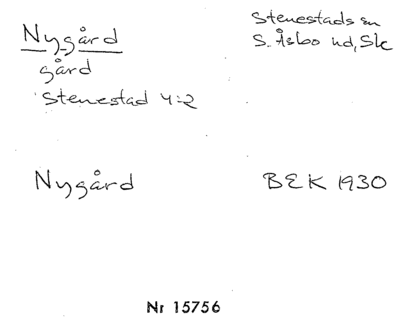 Nygård
gård
Stenestad 4:2
Stenestads sn
S. Åsbo hd, Sk
Nygård
BEK 1930
Nr 15756